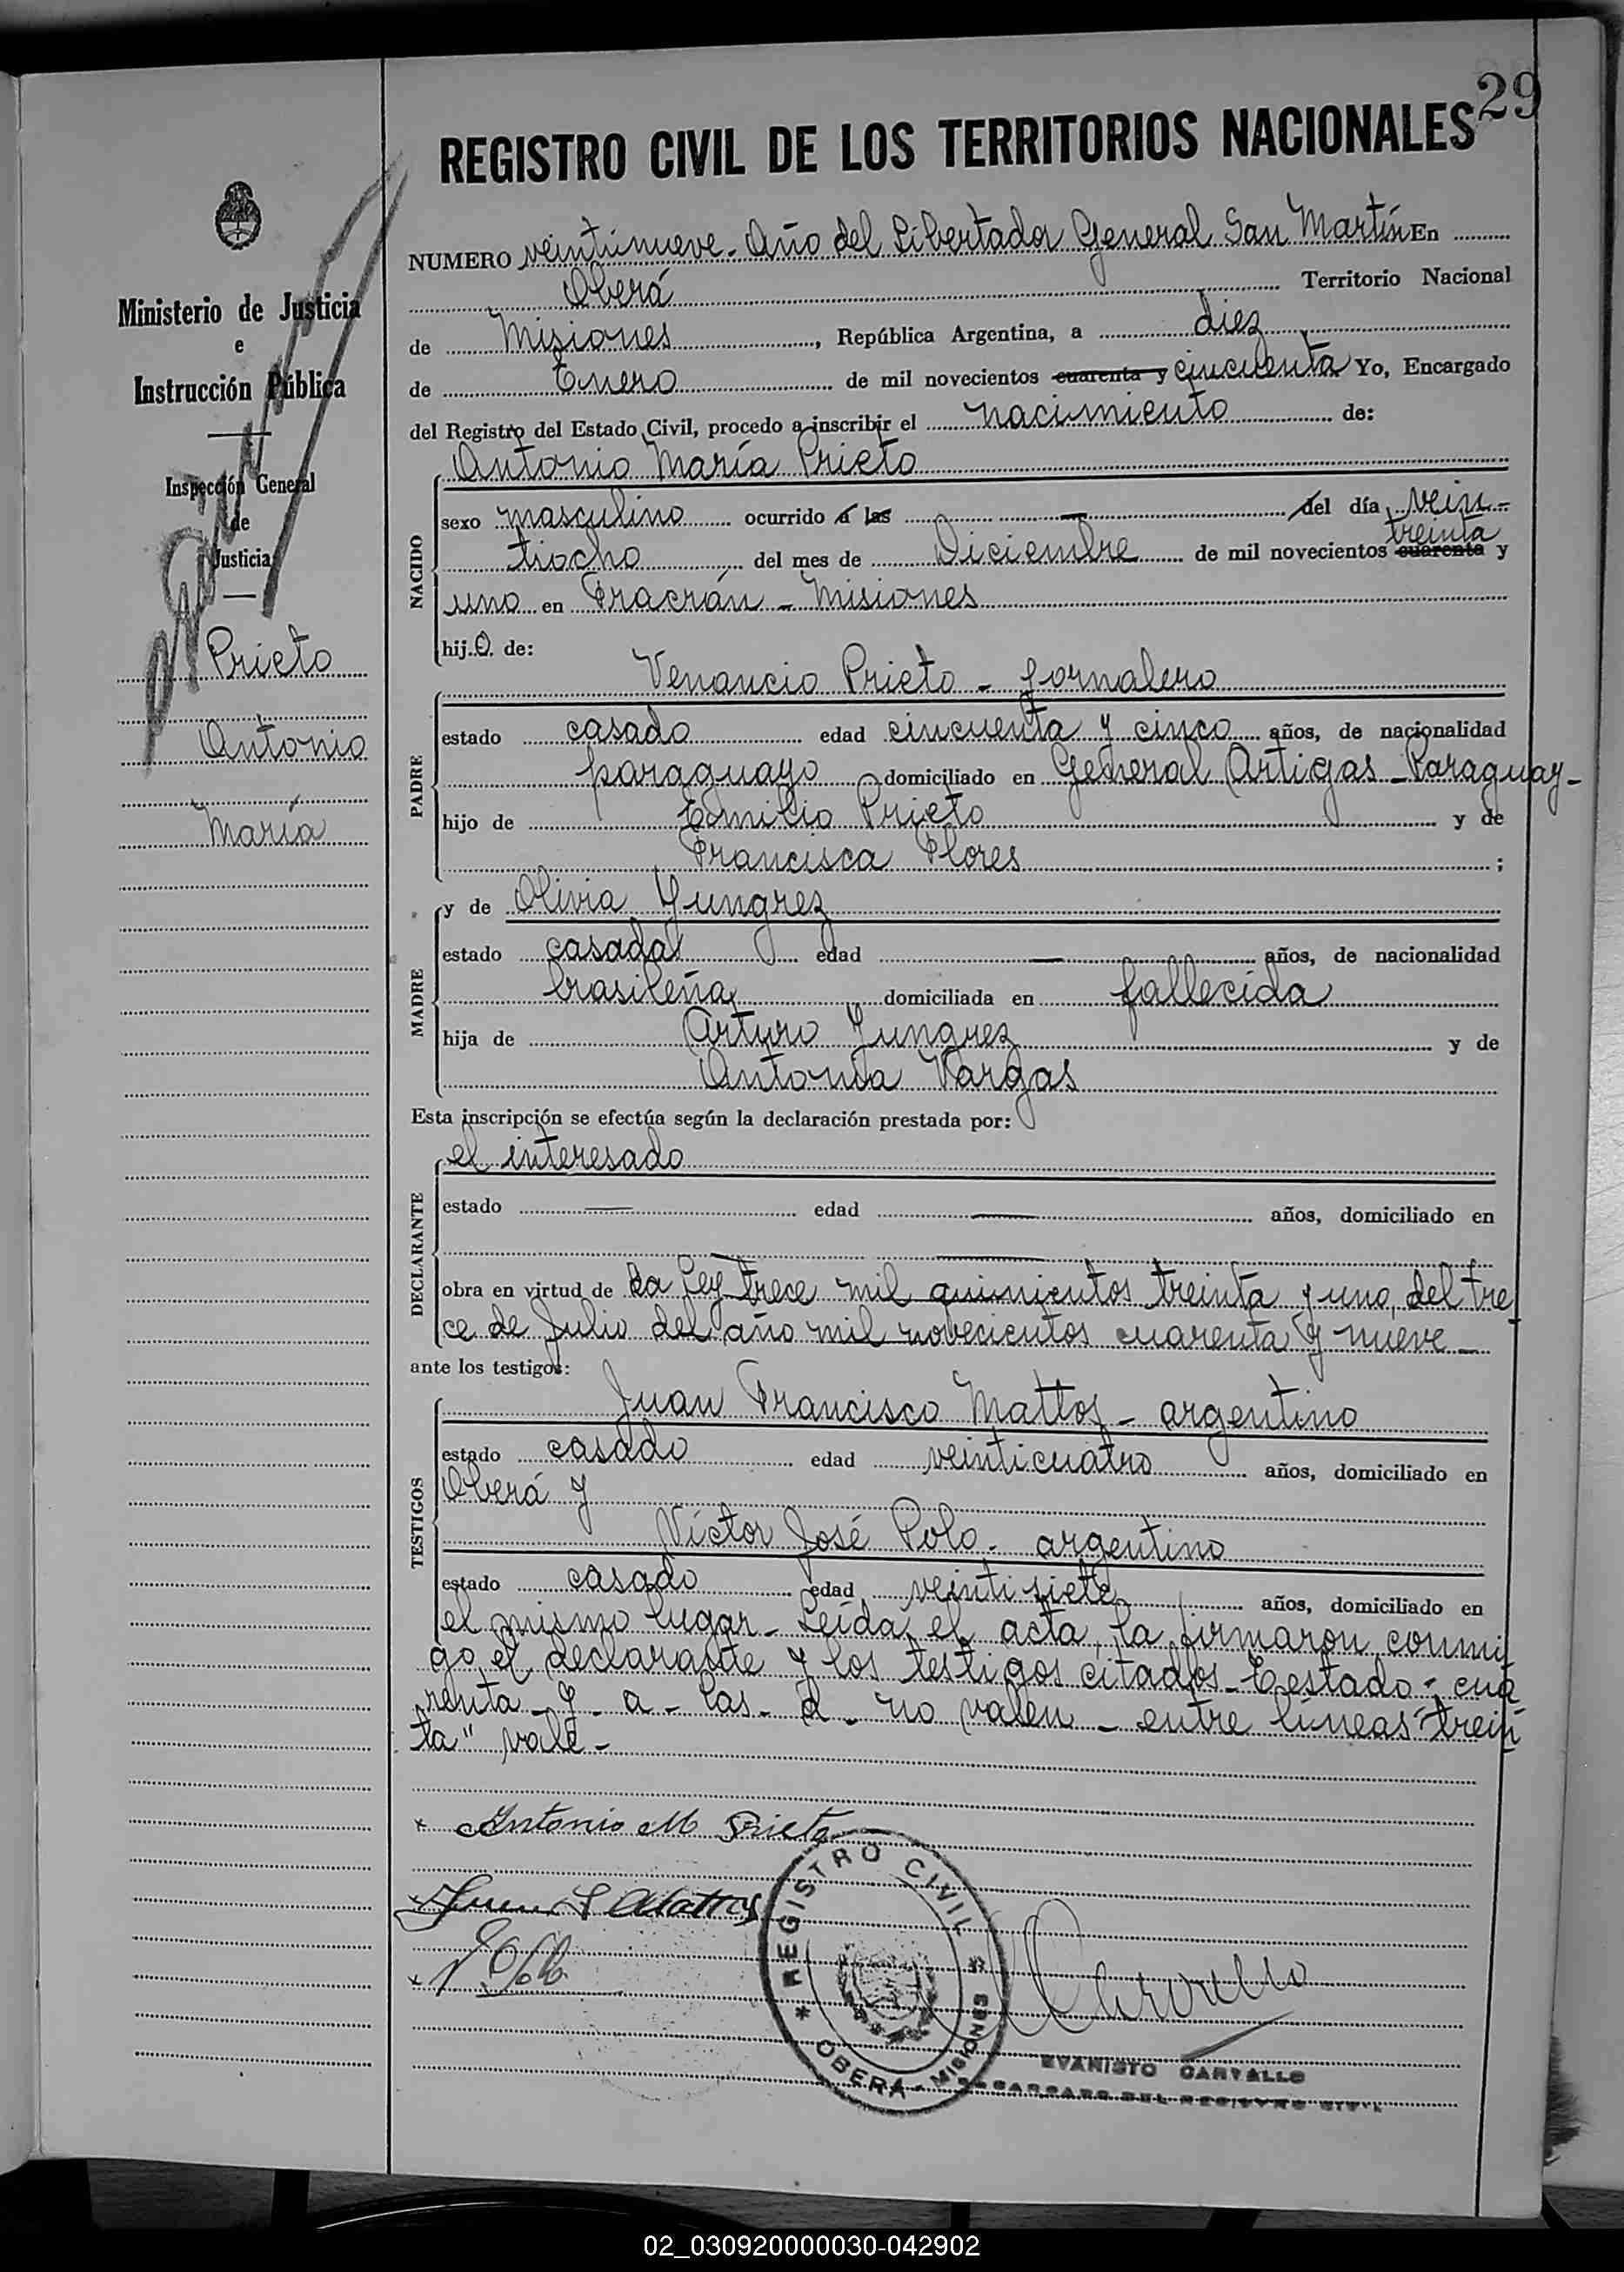 29
REGISTRO CIVIL DE LOS TERRITORIOS NACIONALES
NUMERO veintinueve. Año del Libertador General San Martín En
Oberá Territorio Nacional
de Misiones, República Argentina, a diez
de Enero de mil novecientos cuarenta y cincuenta Yo, Encargado
del Registro del Estado Civil, procedo a inscribir el nacimiento de:
Antonio María Prieto
NACIDO
sexo masculino ocurrido a las — del día vein-
treinta
tiocho del mes de Diciembre de mil novecientos cuarenta y
uno en Fracrán - Misiones
hijo de:
Venancio Prieto - Jornalero
PADRE
estado casado edad cincuenta y cinco años, de nacionalidad
paraguayo domiciliado en General Artigas - Paraguay -
hijo de Emilio Prieto y de
Francisca Flores ;
MADRE
y de Olivia Yungrez
estado casada edad — años, de nacionalidad
brasileña domiciliada en fallecida
hija de Arturo Yungrez y de
Antonia Vargas
Esta inscripción se efectúa según la declaración prestada por:
el interesado
DECLARANTE
estado — edad — años, domiciliado en
— —
obra en virtud de La Ley trece mil quinientos treinta y uno, del tre
ce de Julio del año mil novecientos cuarenta y nueve -
ante los testigos:
Juan Francisco Mattos - argentino
TESTIGOS
estado casado edad veinticuatro años, domiciliado en
Oberá y
Víctor José Polo - argentino
estado casado edad veintisiete años, domiciliado en
el mismo lugar - Leída el acta, la firmaron conmi
go el declarante y los testigos citados - Testado - cua
renta - y - a - las - d - no valen - entre líneas "trein
ta" vale -
x Antonio M Prieto
Ministerio de Justicia
e
Instrucción Pública
Inspección General
de
Justicia
Prieto
Antonio
María
REGISTRO CIVIL
OBERA - MISIONES
EVARISTO CARVALLO
ENCARGADO DEL REGISTRO CIVIL
02_030920000030-042902